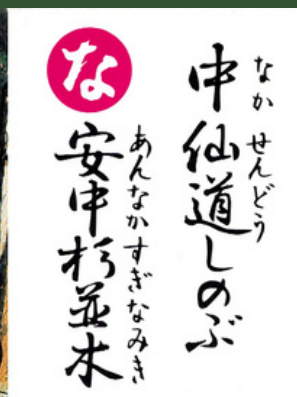 なかせんどう
中仙道しのぶ
な
あんなかすぎなみき
安中杉並木